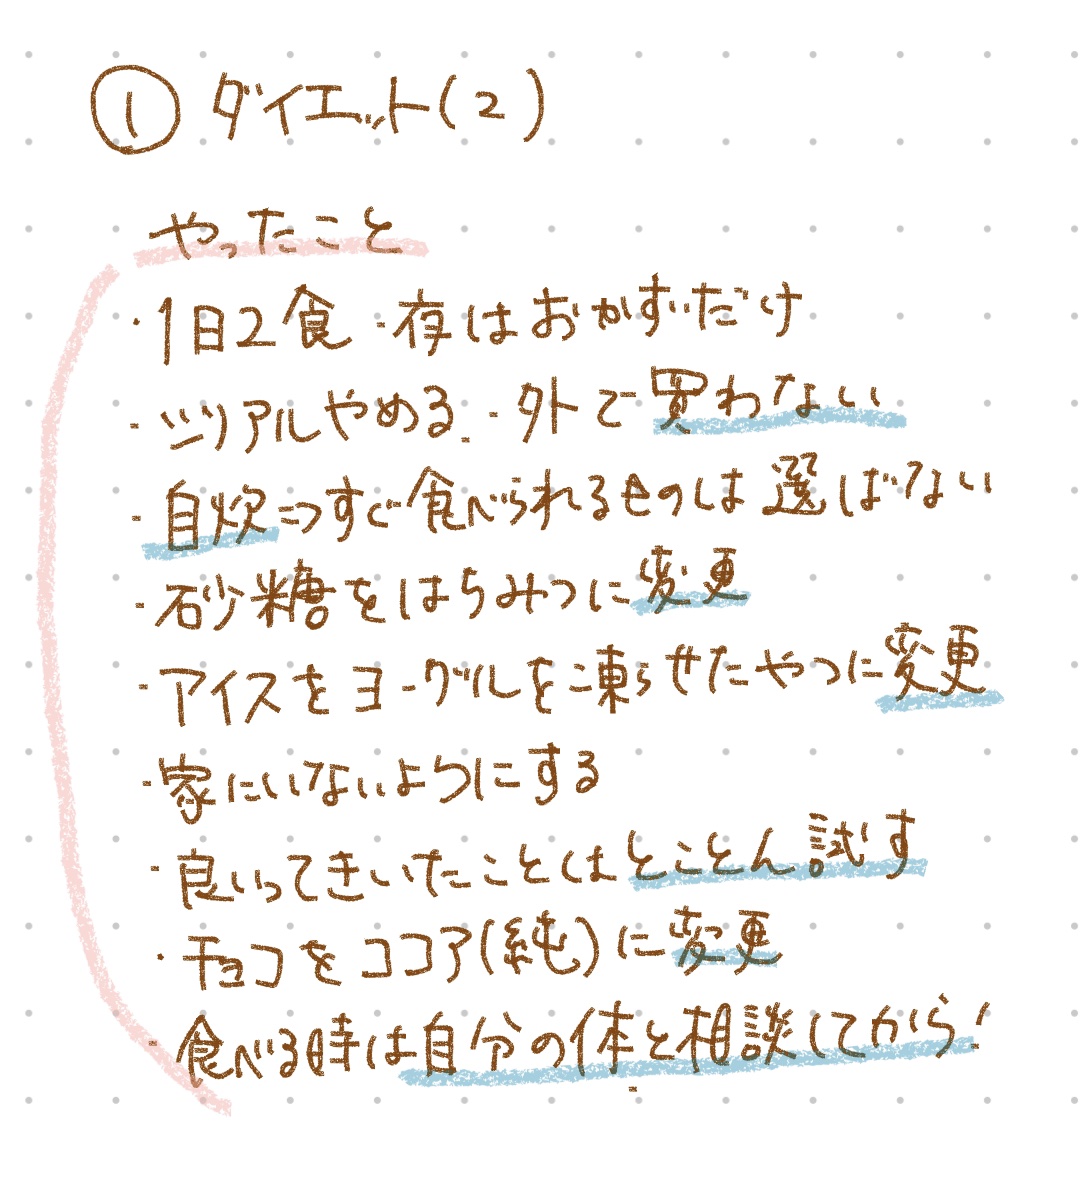 ① ダイエット(2)
やったこと
・1日2食 ・夜はおかずだけ
・シリアルやめる ・外で買わない
・自炊⇒すぐ食べられるものは選ばない
・砂糖をはちみつに変更
・アイスをヨーグルを凍らせたやつに変更
・家にいないようにする
・良いってきいたことはとことん試す
・チョコをココア(純)に変更
・食べる時は自分の体と相談してから!